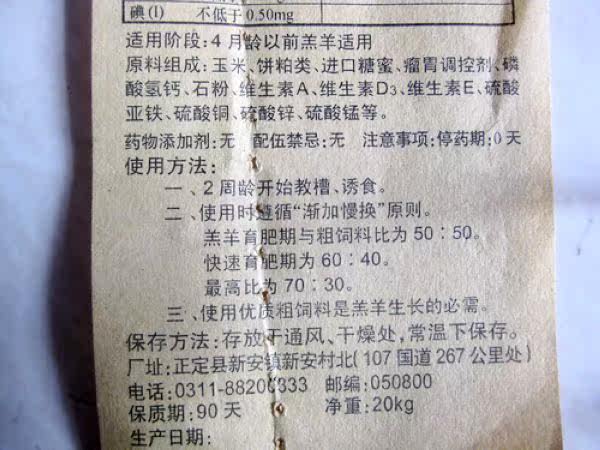 碘(I) 不低于0.50mg
适用阶段:4月龄以前羔羊适用
原料组成:玉米、饼粕类、进口糖蜜、瘤胃调控剂、磷
酸氢钙、石粉、维生素A、维生素D3、维生素E、硫酸
亚铁、硫酸铜、硫酸锌、硫酸锰等。
药物添加剂:无 配伍禁忌:无 注意事项:停药期:0天
使用方法:
一、2周龄开始教槽、诱食。
二、使用时遵循“渐加慢换”原则。
羔羊育肥期与粗饲料比为50:50。
快速育肥期为60:40。
最高比为70:30。
三、使用优质粗饲料是羔羊生长的必需。
保存方法:存放于通风、干燥处,常温下保存。
厂址:正定县新安镇新安村北(107国道267公里处)
电话:0311-88200333 邮编:050800
保质期:90天 净重:20kg
生产日期: